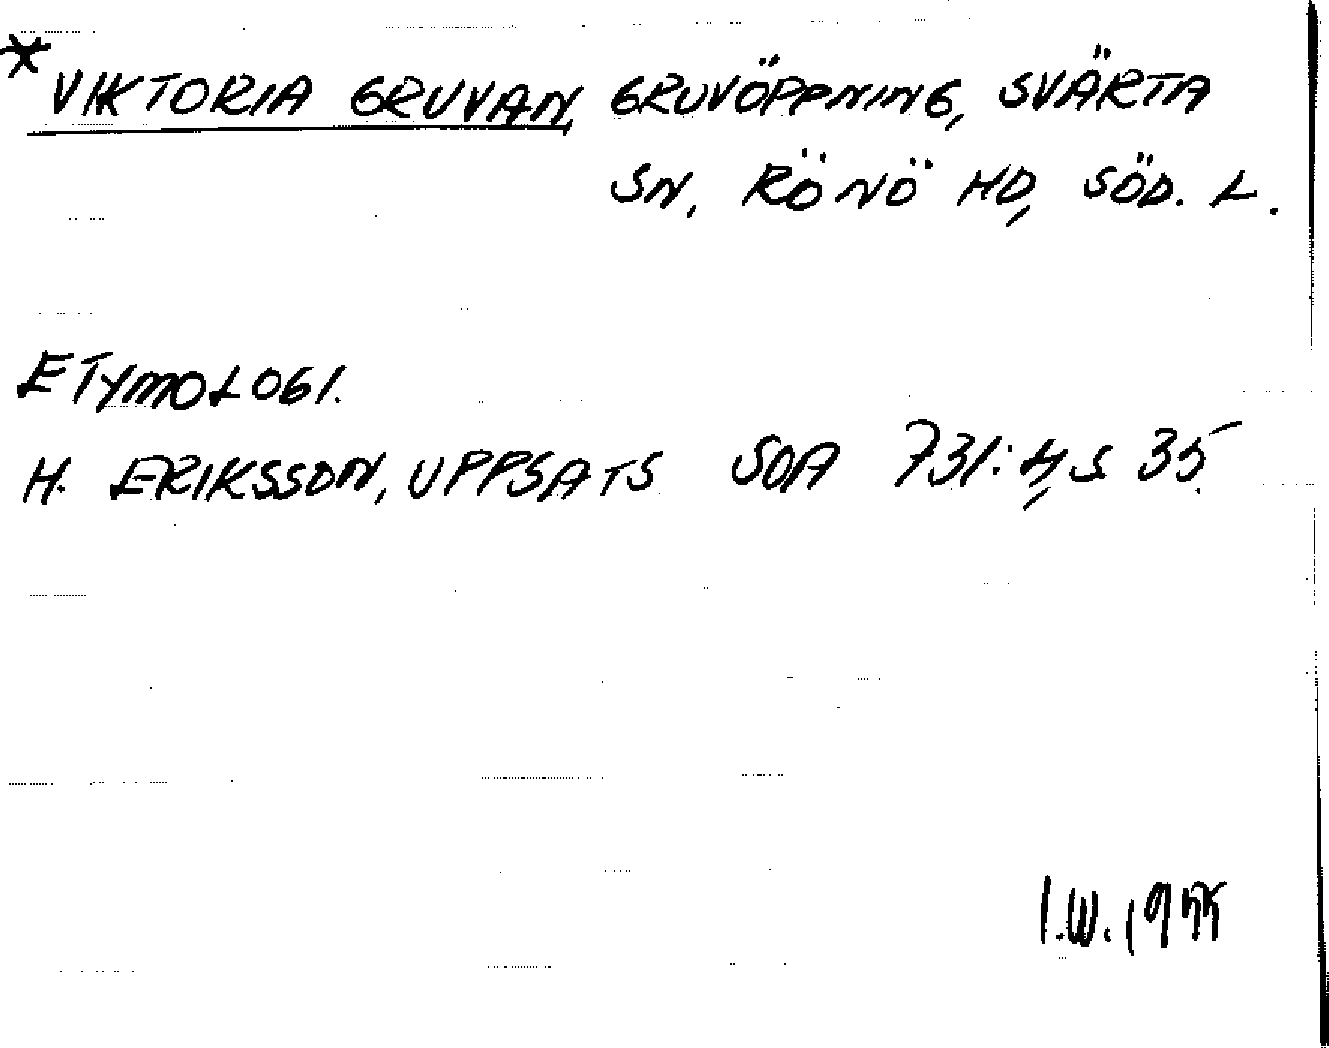 * VIKTORIA GRUVAN, GRUVÖPPNING, SVÄRTA
SN, RÖNÖ HD, SÖD. L.
ETYMOLOGI.
H. ERIKSSON, UPPSATS SOA 731:4, S 35.
I.W. 1955